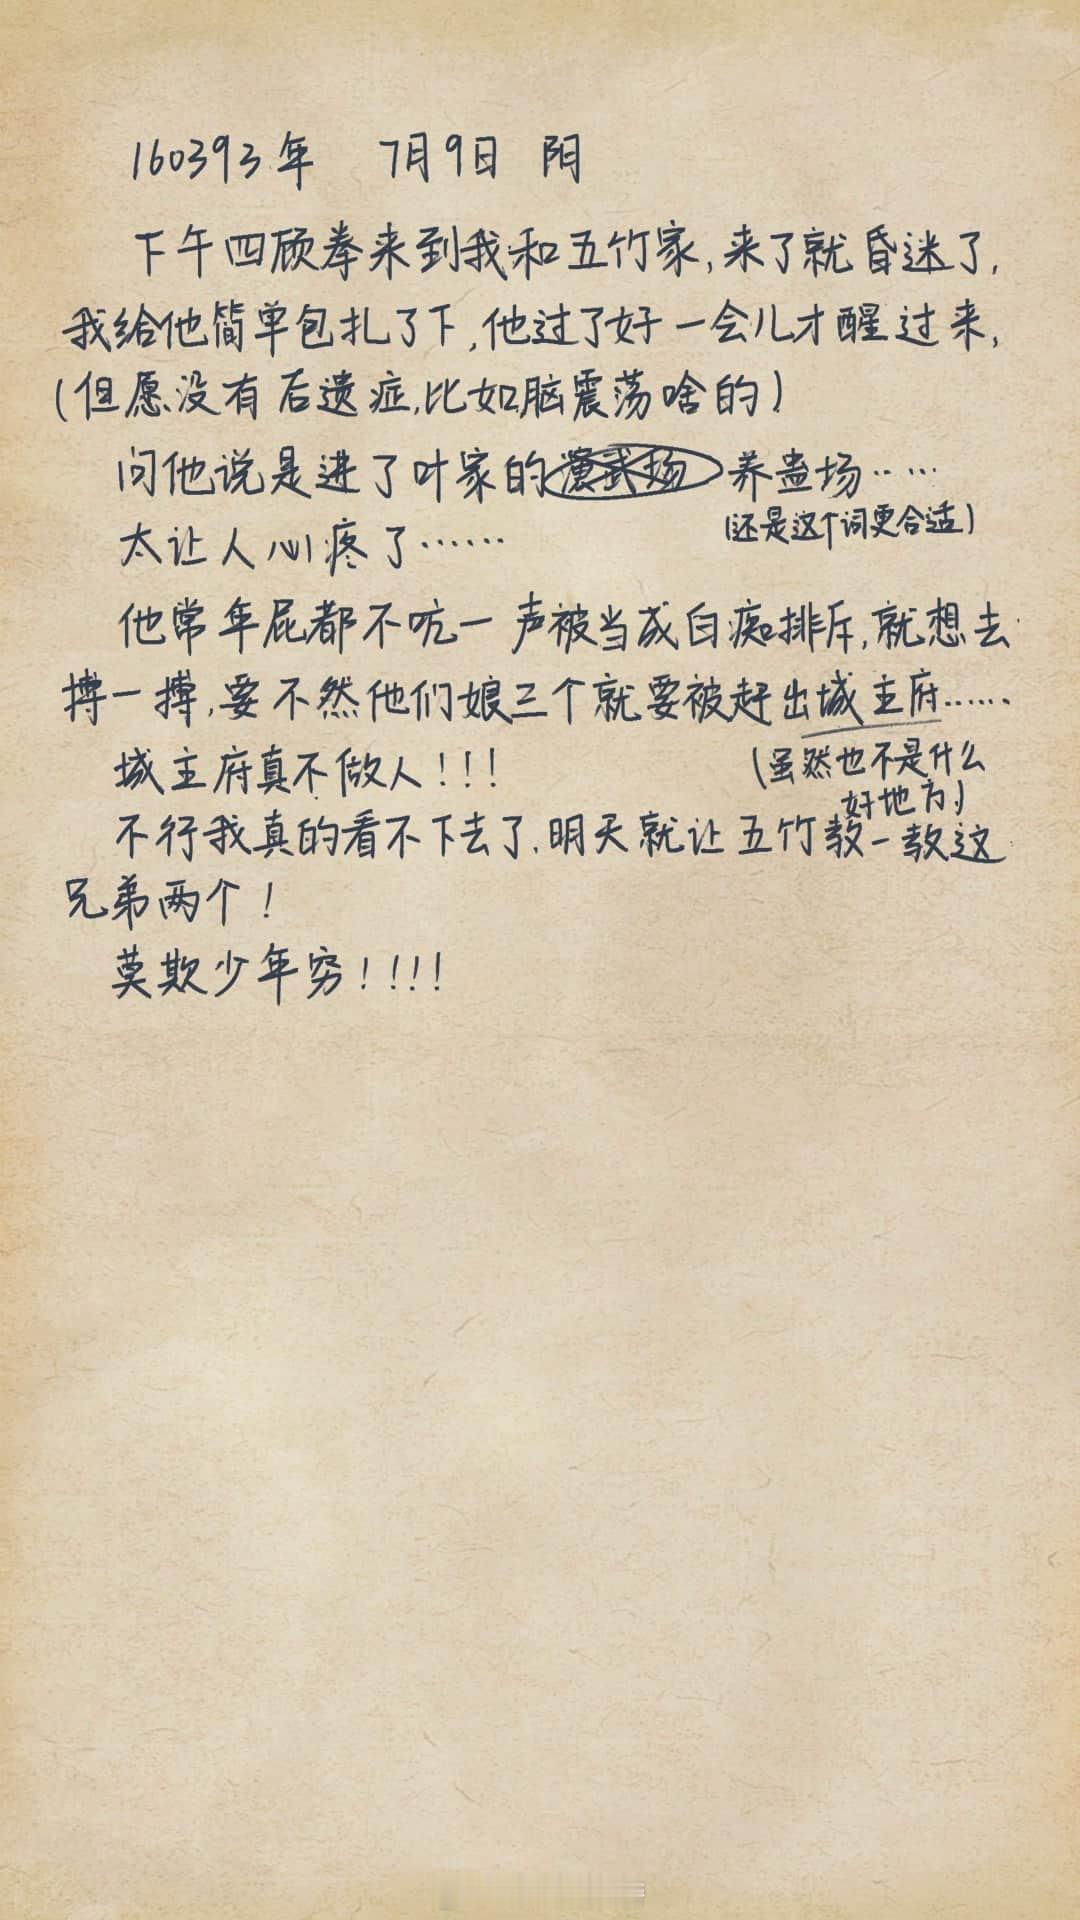 160393年 7月9日 阴
下午四顾拳来到我和五竹家,来了就昏迷了,
我给他简单包扎了下,他过了好一会儿才醒过来,
(但愿没有后遗症,比如脑震荡啥的)
问他说是进了叶家的演武场 养蛊场……
(还是这个词更合适)
太让人心疼了……
他常年屁都不吭一声被当成白痴排斥,就想去
搏一搏,要不然他们娘三个就要被赶出城主府……
(虽然也不是什么
好地方)
城主府真不做人!!!
不行我真的看不下去了.明天就让五竹教一教这
兄弟两个!
莫欺少年穷!!!!